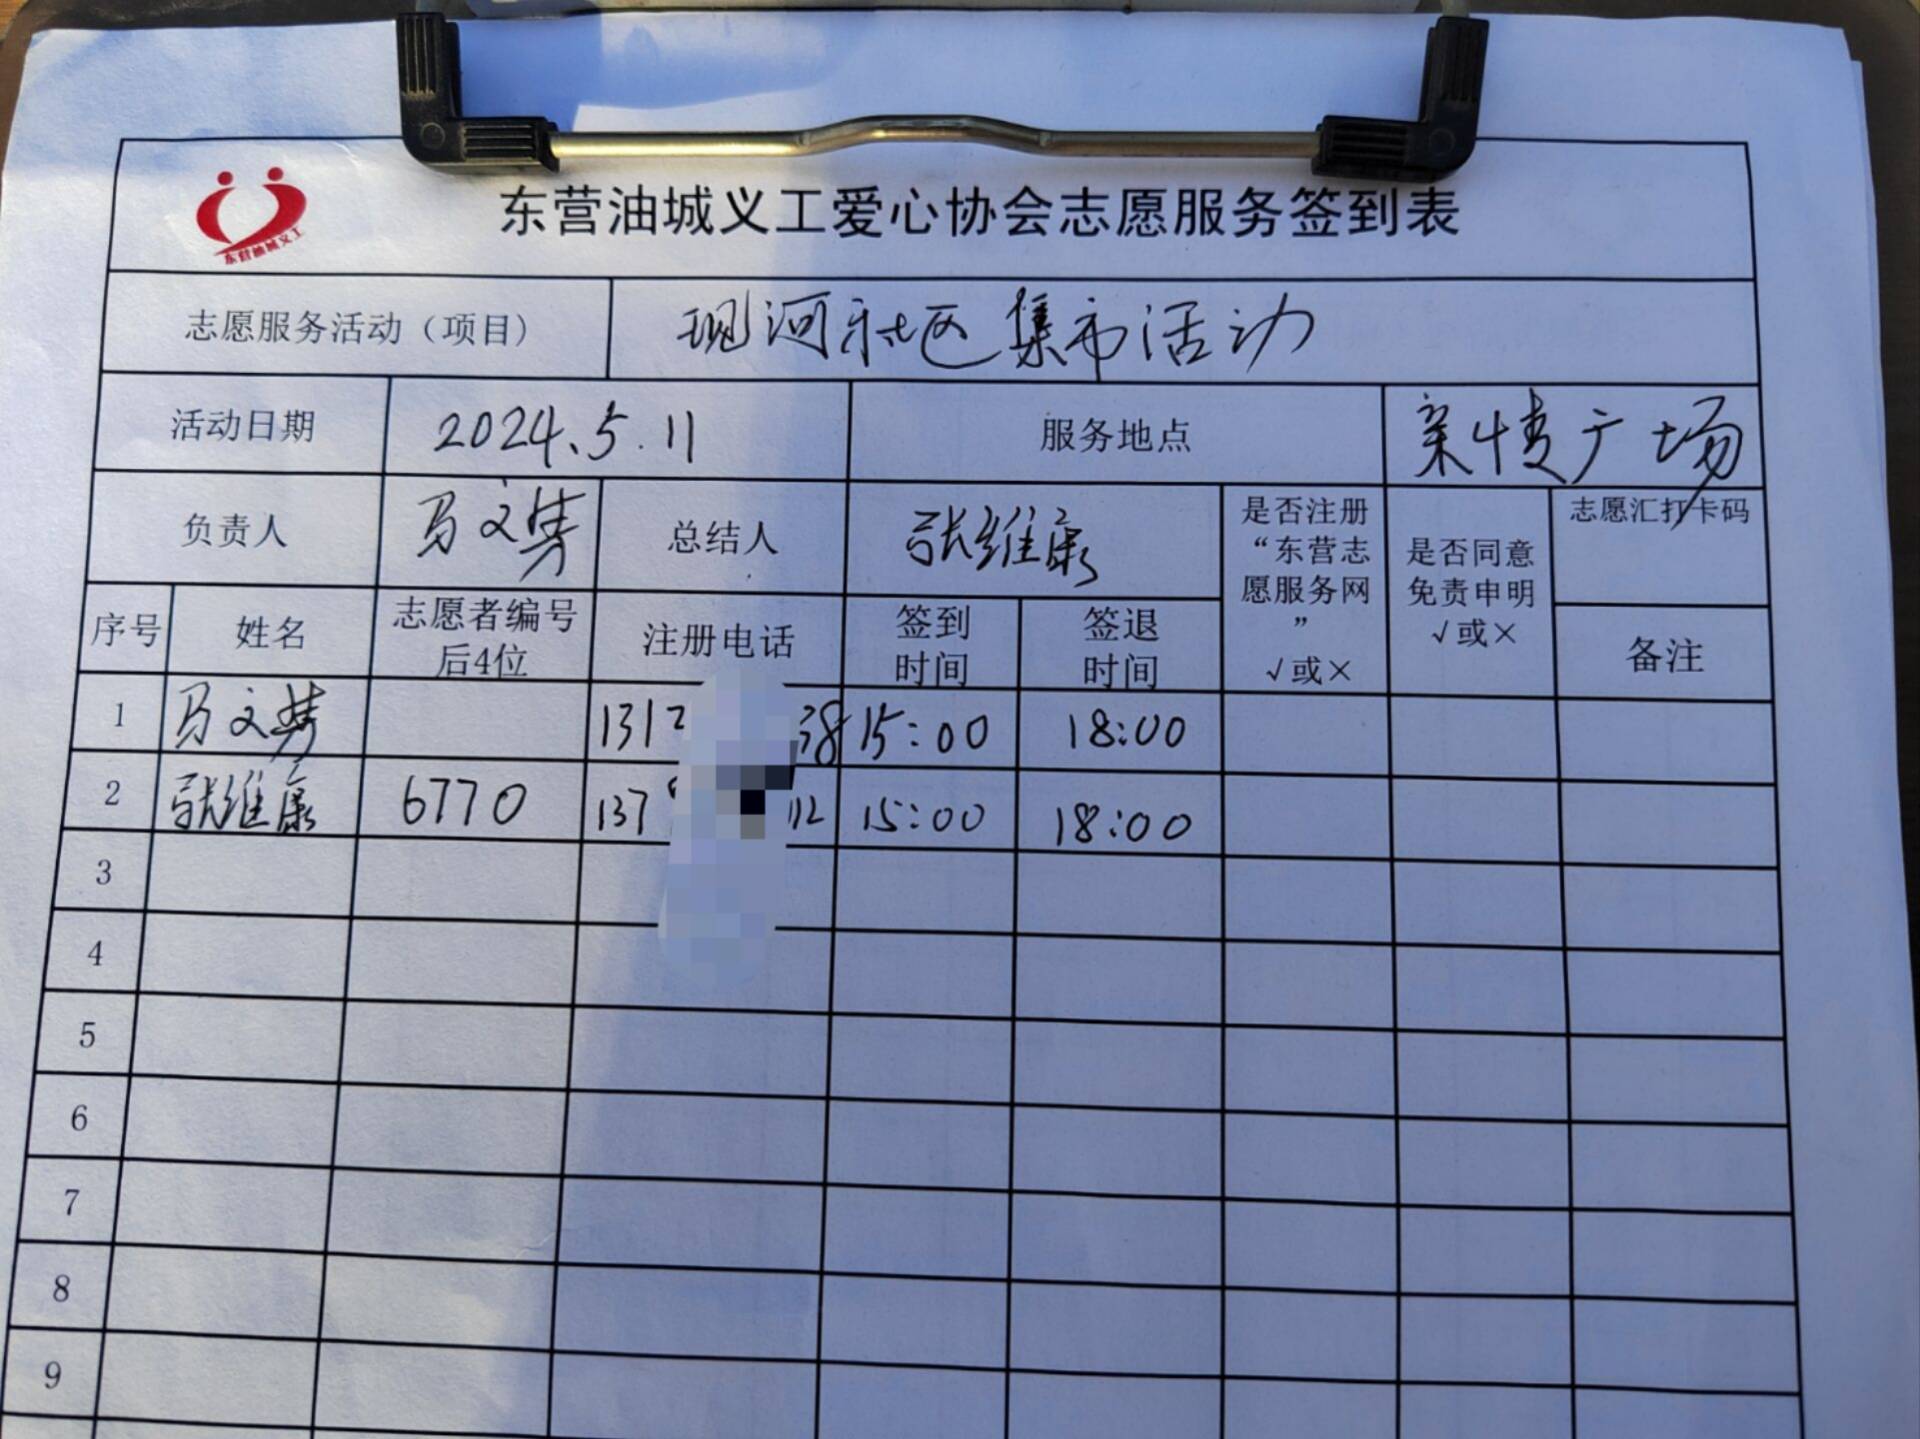 东营油城义工
东营油城义工爱心协会志愿服务签到表
志愿服务活动（项目） 现河社区集市活动
活动日期 2024.5.11 服务地点 亲情广场
负责人 马文隽 总结人 张维康
是否注册
“东营志
愿服务网
”
√或×
是否同意
免责申明
√或×
志愿汇打卡码
备注
序号 姓名 志愿者编号
后4位
注册电话 签到
时间
签退
时间
1 马文隽 131 38 15:00 18:00
2 张维康 6770 137 112 15:00 18:00
3
4
5
6
7
8
9